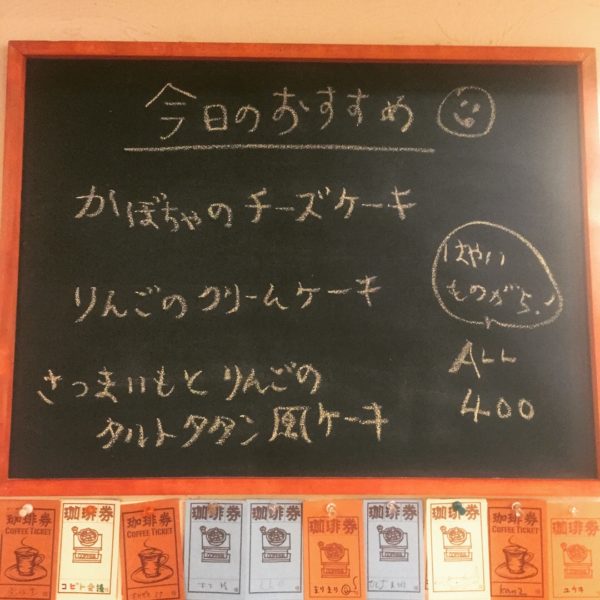 今日のおすすめ
かぼちゃのチーズケーキ
りんごのクリームケーキ
さつまいもとりんごの
タルトタタン風ケーキ
はやい
ものがち!
ALL
400
珈琲券
COFFEE TICKET
珈琲券
COFFEE
コビト会議
珈琲券
COFFEE TICKET
珈琲券
COFFEE
珈琲券
COFFEE
珈琲券
COFFEE
珈琲券
COFFEE
珈琲券
COFFEE
珈琲券
COFFEE TICKET
kana
珈琲券
COFFEE
ユウキ